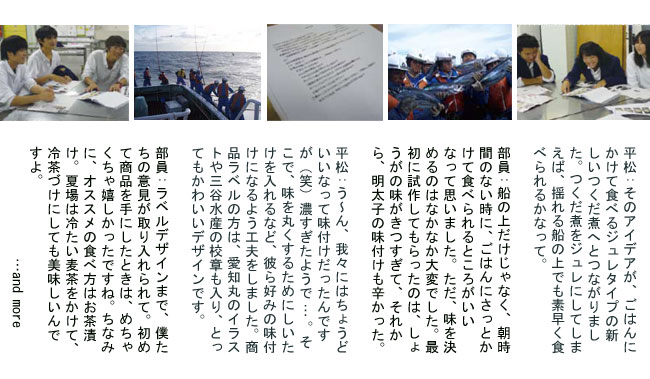 平松：そのアイデアが、ごはんに
かけて食べるジュレタイプの新
しいつくだ煮へとつながりまし
た。つくだ煮をジュレにしてしま
えば、揺れる船の上でも素早く食
べられるかなって。
部員：船の上だけじゃなく、朝時
間のない時に、ごはんにさっとか
けて食べられるところがいい
なって思いました。ただ、味を決
めるのはなかなか大変でした。最
初に試作してもらったのは、しょ
うがの味がきつすぎて、それか
ら、明太子の味付けも辛かった。
平松：う〜ん、我々にはちょうど
いいなって味付けだったんです
が（笑）濃すぎたようで…。そ
こで、味を丸くするためにしいた
けを入れるなど、彼ら好みの味付
けになるよう工夫をしました。商
品ラベルの方は、愛知丸のイラス
トや三谷水産の校章も入り、とっ
てもかわいいデザインです。
部員：ラベルデザインまで、僕た
ちの意見が取り入れられて。初め
て商品を手にしたときは、めちゃ
くちゃ嬉しかったですね。ちなみ
に、オススメの食べ方はお茶漬
け。夏場は冷たい麦茶をかけて、
冷茶づけにしても美味しいんで
すよ。
…and more